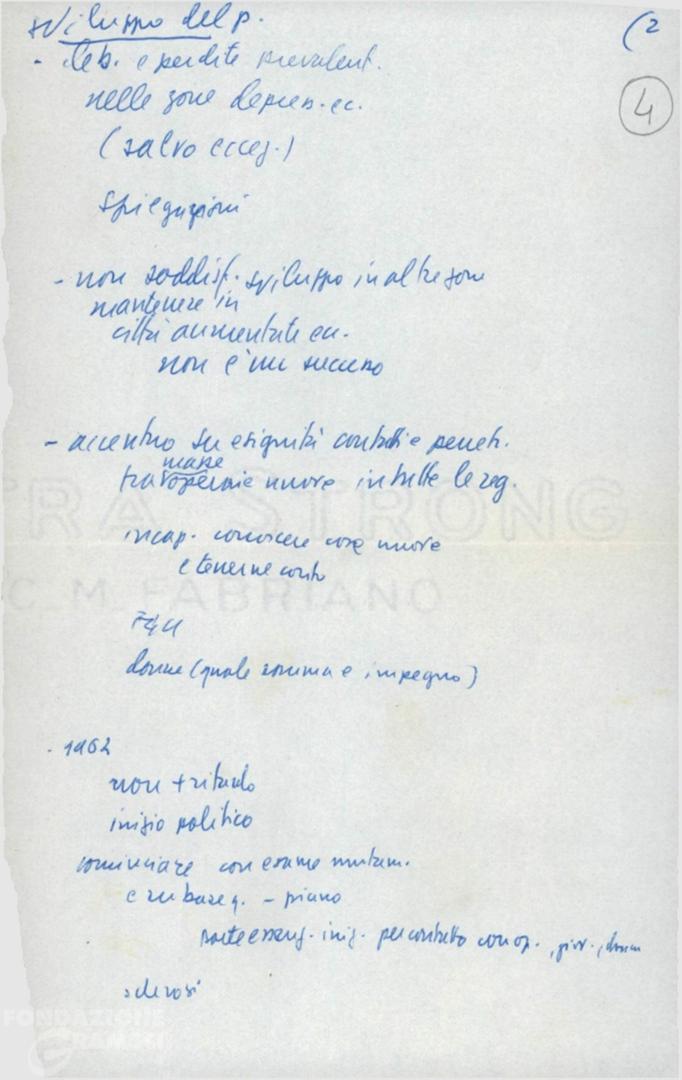 sviluppo del p.
(2
4
- deb. e perdite prevalent.
nelle zone depress. ec.
(salvo eccez.)
spiegazioni
- non soddisf. sviluppo in altre zone
mantenere in
città aumentate ecc.
non è un successo
- accento su esiguità contatti e penetr.
tra masse operaie nuove in tutte le reg.
incap. conoscere cose nuove
e tenerne conto
FGCI
donne (quale somma e impegno)
- 1962
non + ritardo
inizio politico
cominciare con esame mutam.
e su base q. - piano
parte essenz. iniz. per contatto con op., giov., donne
sclerosi
TRA STRONG
C.M. FABRIANO
FONDAZIONE
GRAMSCI